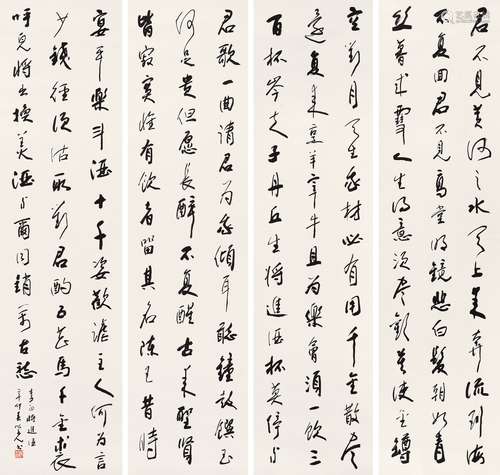 君不見黃河之水天上來奔流到海
不復回君不見高堂明鏡悲白髮朝如青
絲暮成雪人生得意須盡歡莫使金樽
空對月天生我材必有用千金散盡
還復來烹羊宰牛且為樂會須一飲三
百杯岑夫子丹丘生將進酒杯莫停與
君歌一曲請君為我傾耳聽鐘鼓饌玉
何足貴但愿長醉不復醒古來聖賢
皆寂寞惟有飲者留其名陳王昔時
宴平樂斗酒十千恣歡謔主人何為言
少錢徑須沽取對君酌五花馬千金裘
呼兒將出換美酒與爾同銷萬古愁
李白將進酒